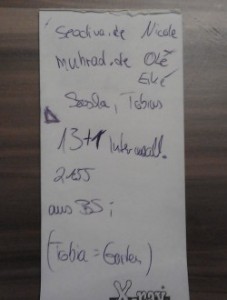 Seactiva.de Nicole
muhrad.de Olé
Eiké
Sascha, Tobias
13+1 Intervall.
2155
aus BS;
(Tobia = Garten)